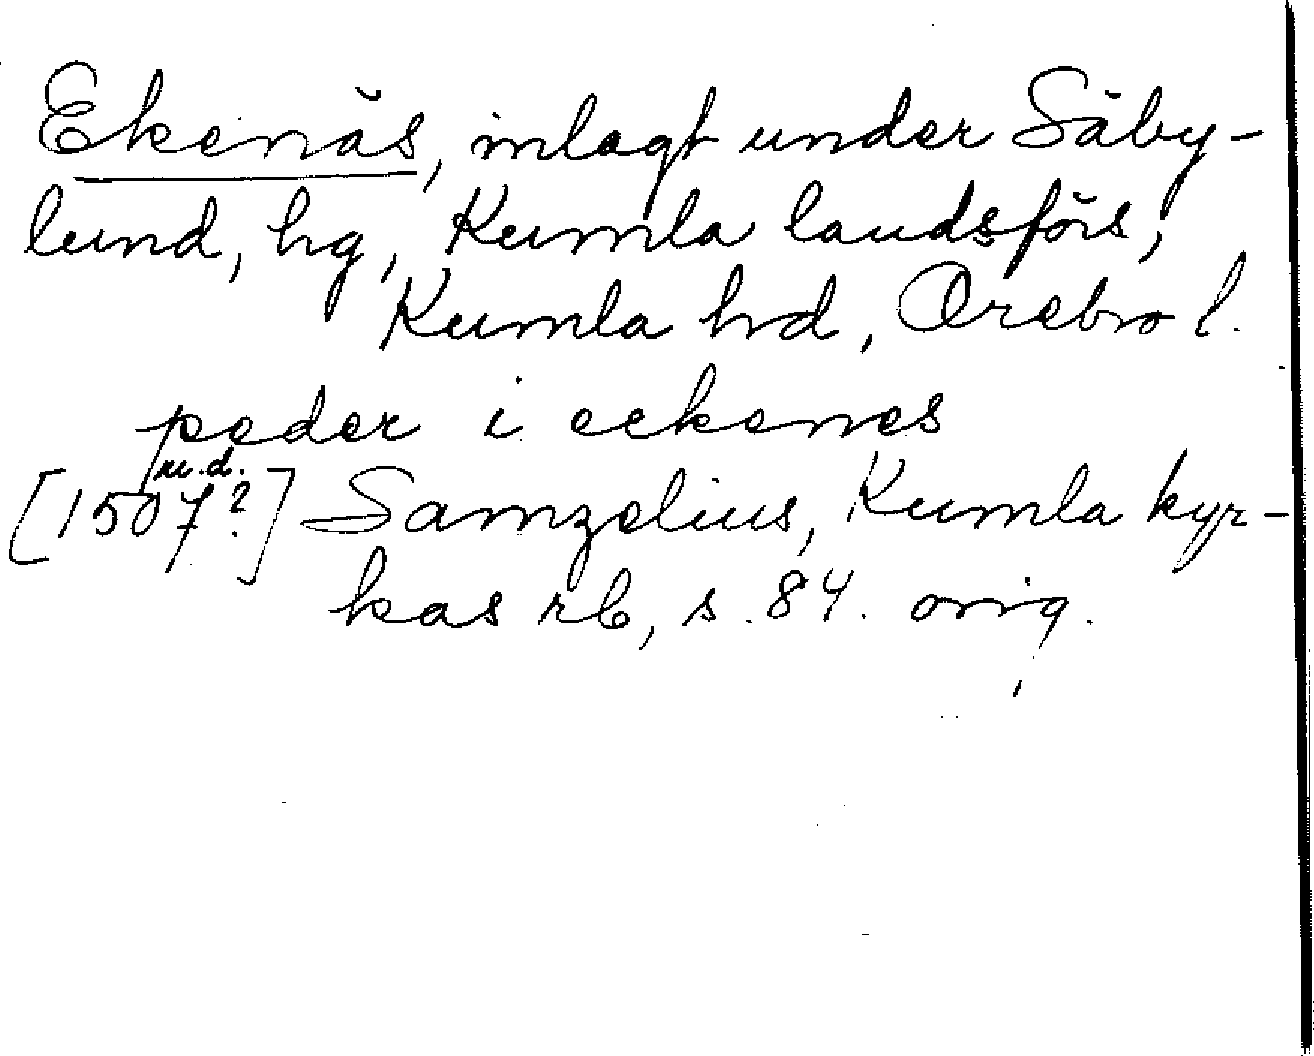 Ekenäs, inlagt under Säby-
lund, hg, Kumla landsförs,
Kumla hd, Örebro l.
peder i eekenes
u.d.
[1507?] Samzelius, Kumla kyr-
kas rb, s. 84. orig.